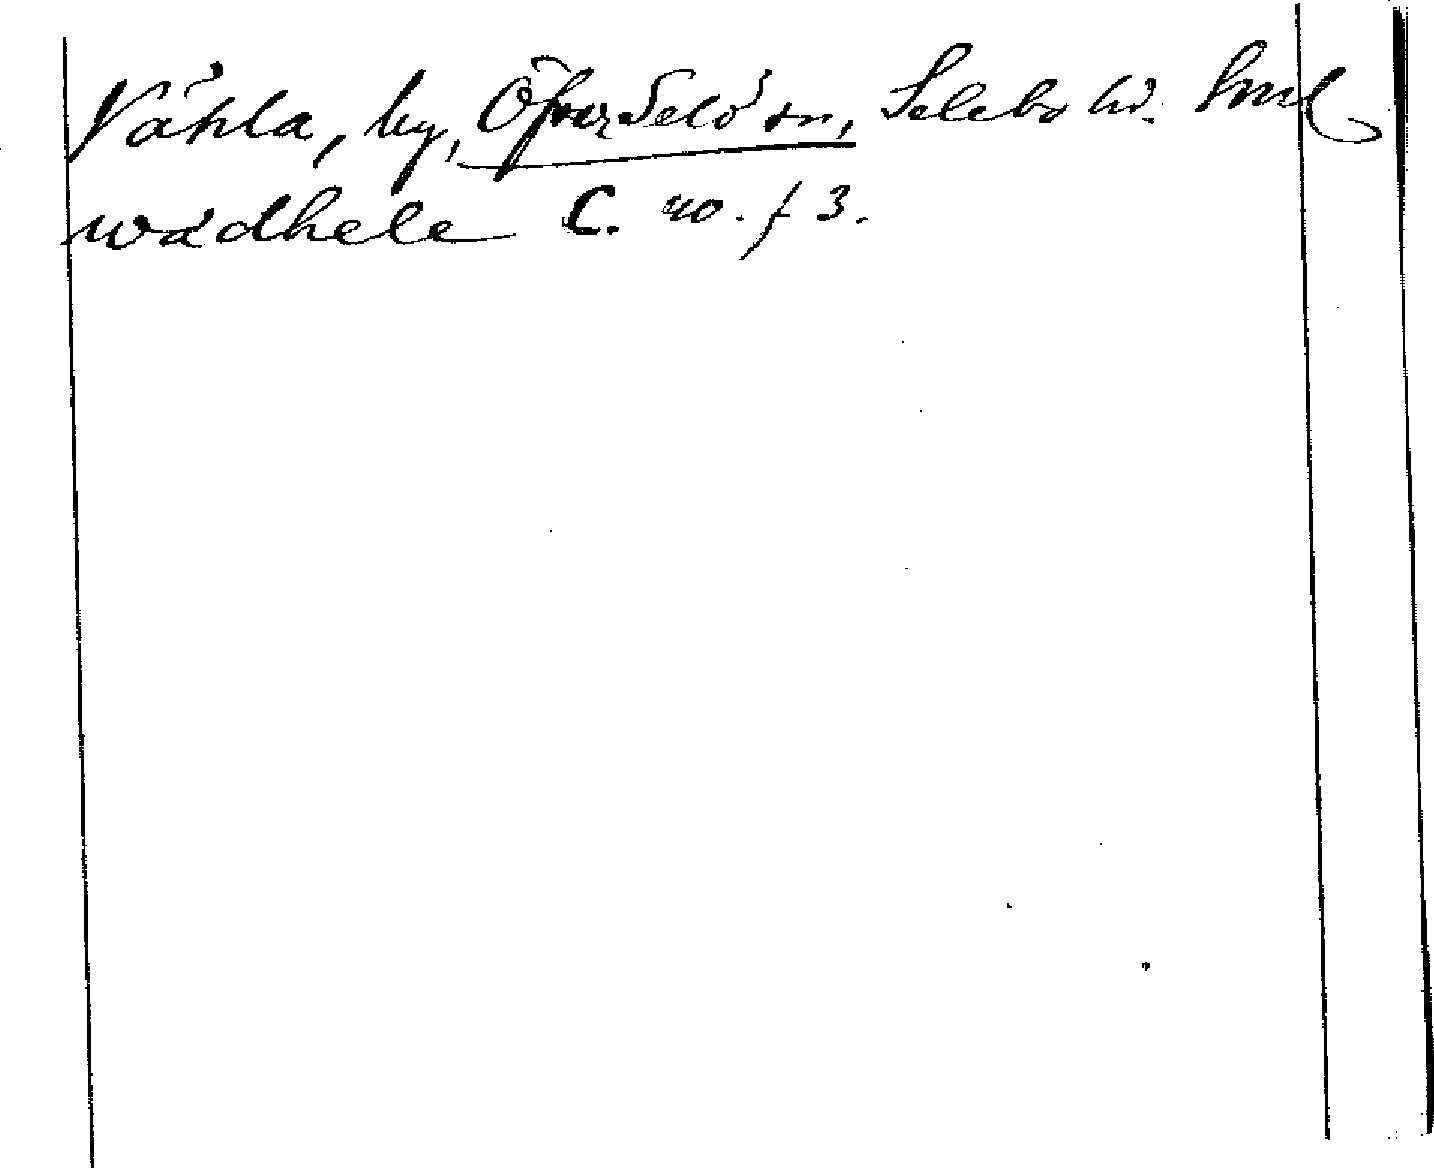 Vähla, by, Öfverselö sn, Selebo hd. Sml
wädhele C. 40. f 3.